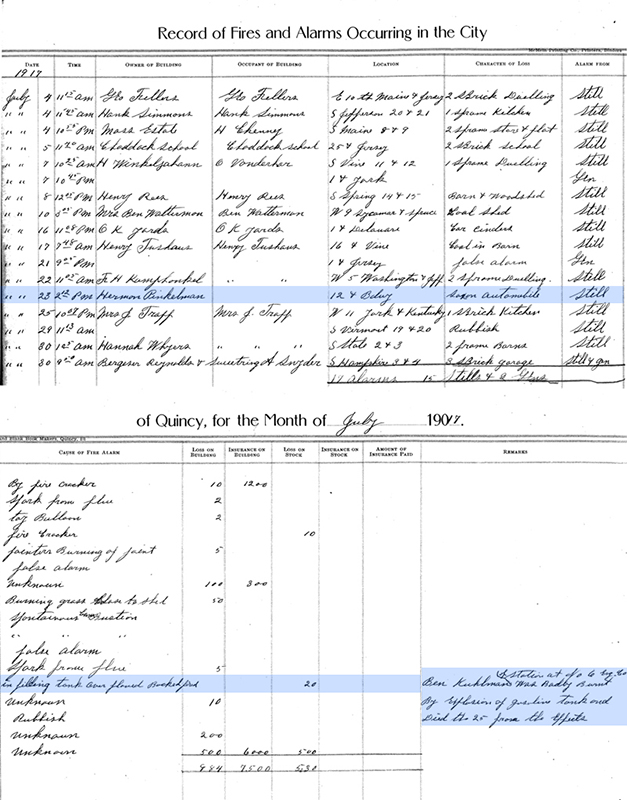 Record of Fires and Alarms Occurring in the City
McMein Printing Co., Printers,
DATE TIME OWNER OF BUILDING OCCUPANT OF BUILDING LOCATION CHARACTER OF LOSS ALARM FROM
1917
July 4 11 15 am Geo Fellers Geo Fellers E 10th Maine & Jersey 2 S Brick Dwelling Still
" " 4 11 am Hank Simmons Hank Simmons S Jefferson 20 & 21 1 S frame Kitchen Still
" " 4 10 Pm Moss Estate H Chenney S Maine 8 & 9 2 S frame store & flat Still
" " 5 11 am Choddock school Choddock school 25 & Jersey 2 S Brick school Still
" " 7 10 am H Winkeljohann O Vonderhor S Vine 11 & 12 1 S frame Dwelling Still
" " 7 10 Pm 1 & York Gen
" " 8 12 Pm Henry Rees Henry Rees S Spring 14 & 15 Barn & Woodshed Still
" " 10 Pm Mrs Ben Watterman Ben Watterman W 9 Sycamor & Spruce Coal Shed Still
" " 16 11 Pm C K Yards C K Yards 1 & Delaware Car Cinders Still
" " 17 7 am Henry Tushaus Henry Tushaus 16 & Vine Coal in Barn Still
" " 21 9 Pm 1 & Jersey false alarm Gen
" " 22 11 am H Kamphonkel " " W 5 Washington & Jeff 2 S frame Dwelling. Still
" " 23 2 Pm Hermon Binkelman 12 & Saxon Automobile Still
" " 25 10 Pm Mrs J Trapp Mrs J Trapp W 11 York & Kentucky 1 S Brick Kitchen Still
" " 29 11 am S Vermont 19 & 20 Rubbish Still
" " 30 1 am Hannah " " " S State 2 & 3 2 frame Barns Still
" " 30 9 am Bergeser Reynolds & Sweetring A Snyder S Hampshire 3 & 4 3 S Brick garage Still & gen
17 alarms 15 Stills & 2 Gens
of Quincy, for the Month of July 1917.
and Blank Book Makers, Quincy, Ill
CAUSE OF FIRE ALARM LOSS ON BUILDING INSURANCE ON BUILDING LOSS ON STOCK INSURANCE ON STOCK AMOUNT OF INSURANCE PAID REMARKS
By fire cracker 10 1200
Spark from flue 2
toy Balloon 2
fire Cracker 10
painters Burning of paint 5
false alarm
Unknown 100 300
Burning grass close to shed 50
Spontainous Combustion
" " "
false alarm
Spark from flue 5
in filling tank over flowed Backed fired 20 Ben Kuhlman Was Badly Burnt
Unknown 10 By Explosion of gasoline tank and
Rubbish Died the 25 from the Effects
Unknown 200
Unknown 500 6000 500
984 7500 530